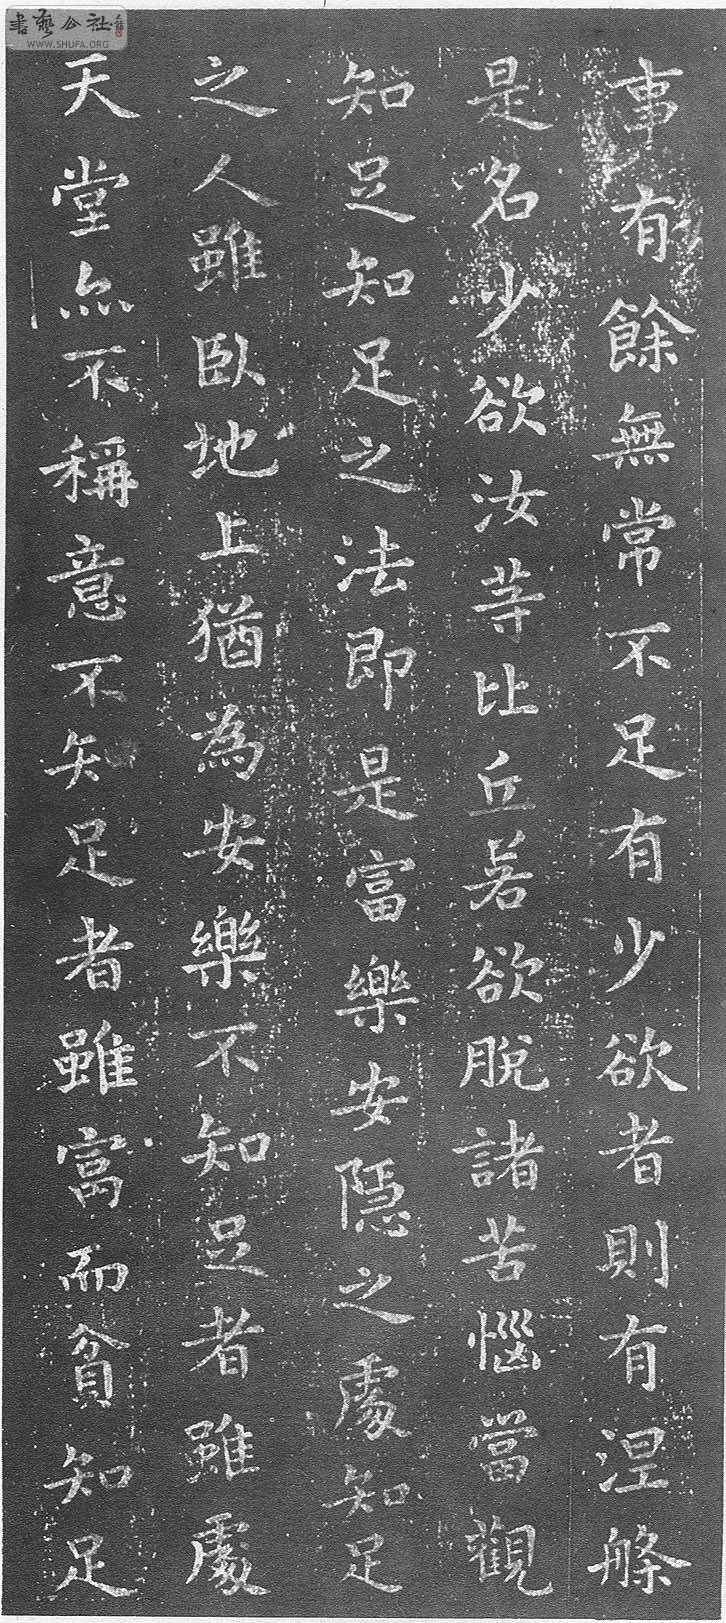 書藝公社
WWW.SHUFA.ORG
事有餘無常不足有少欲者則有涅槃
是名少欲汝等比丘若欲脫諸苦惱當觀
知足知足之法即是富樂安隱之處知足
之人雖臥地上猶為安樂不知足者雖處
天堂亦不稱意不知足者雖富而貧知足